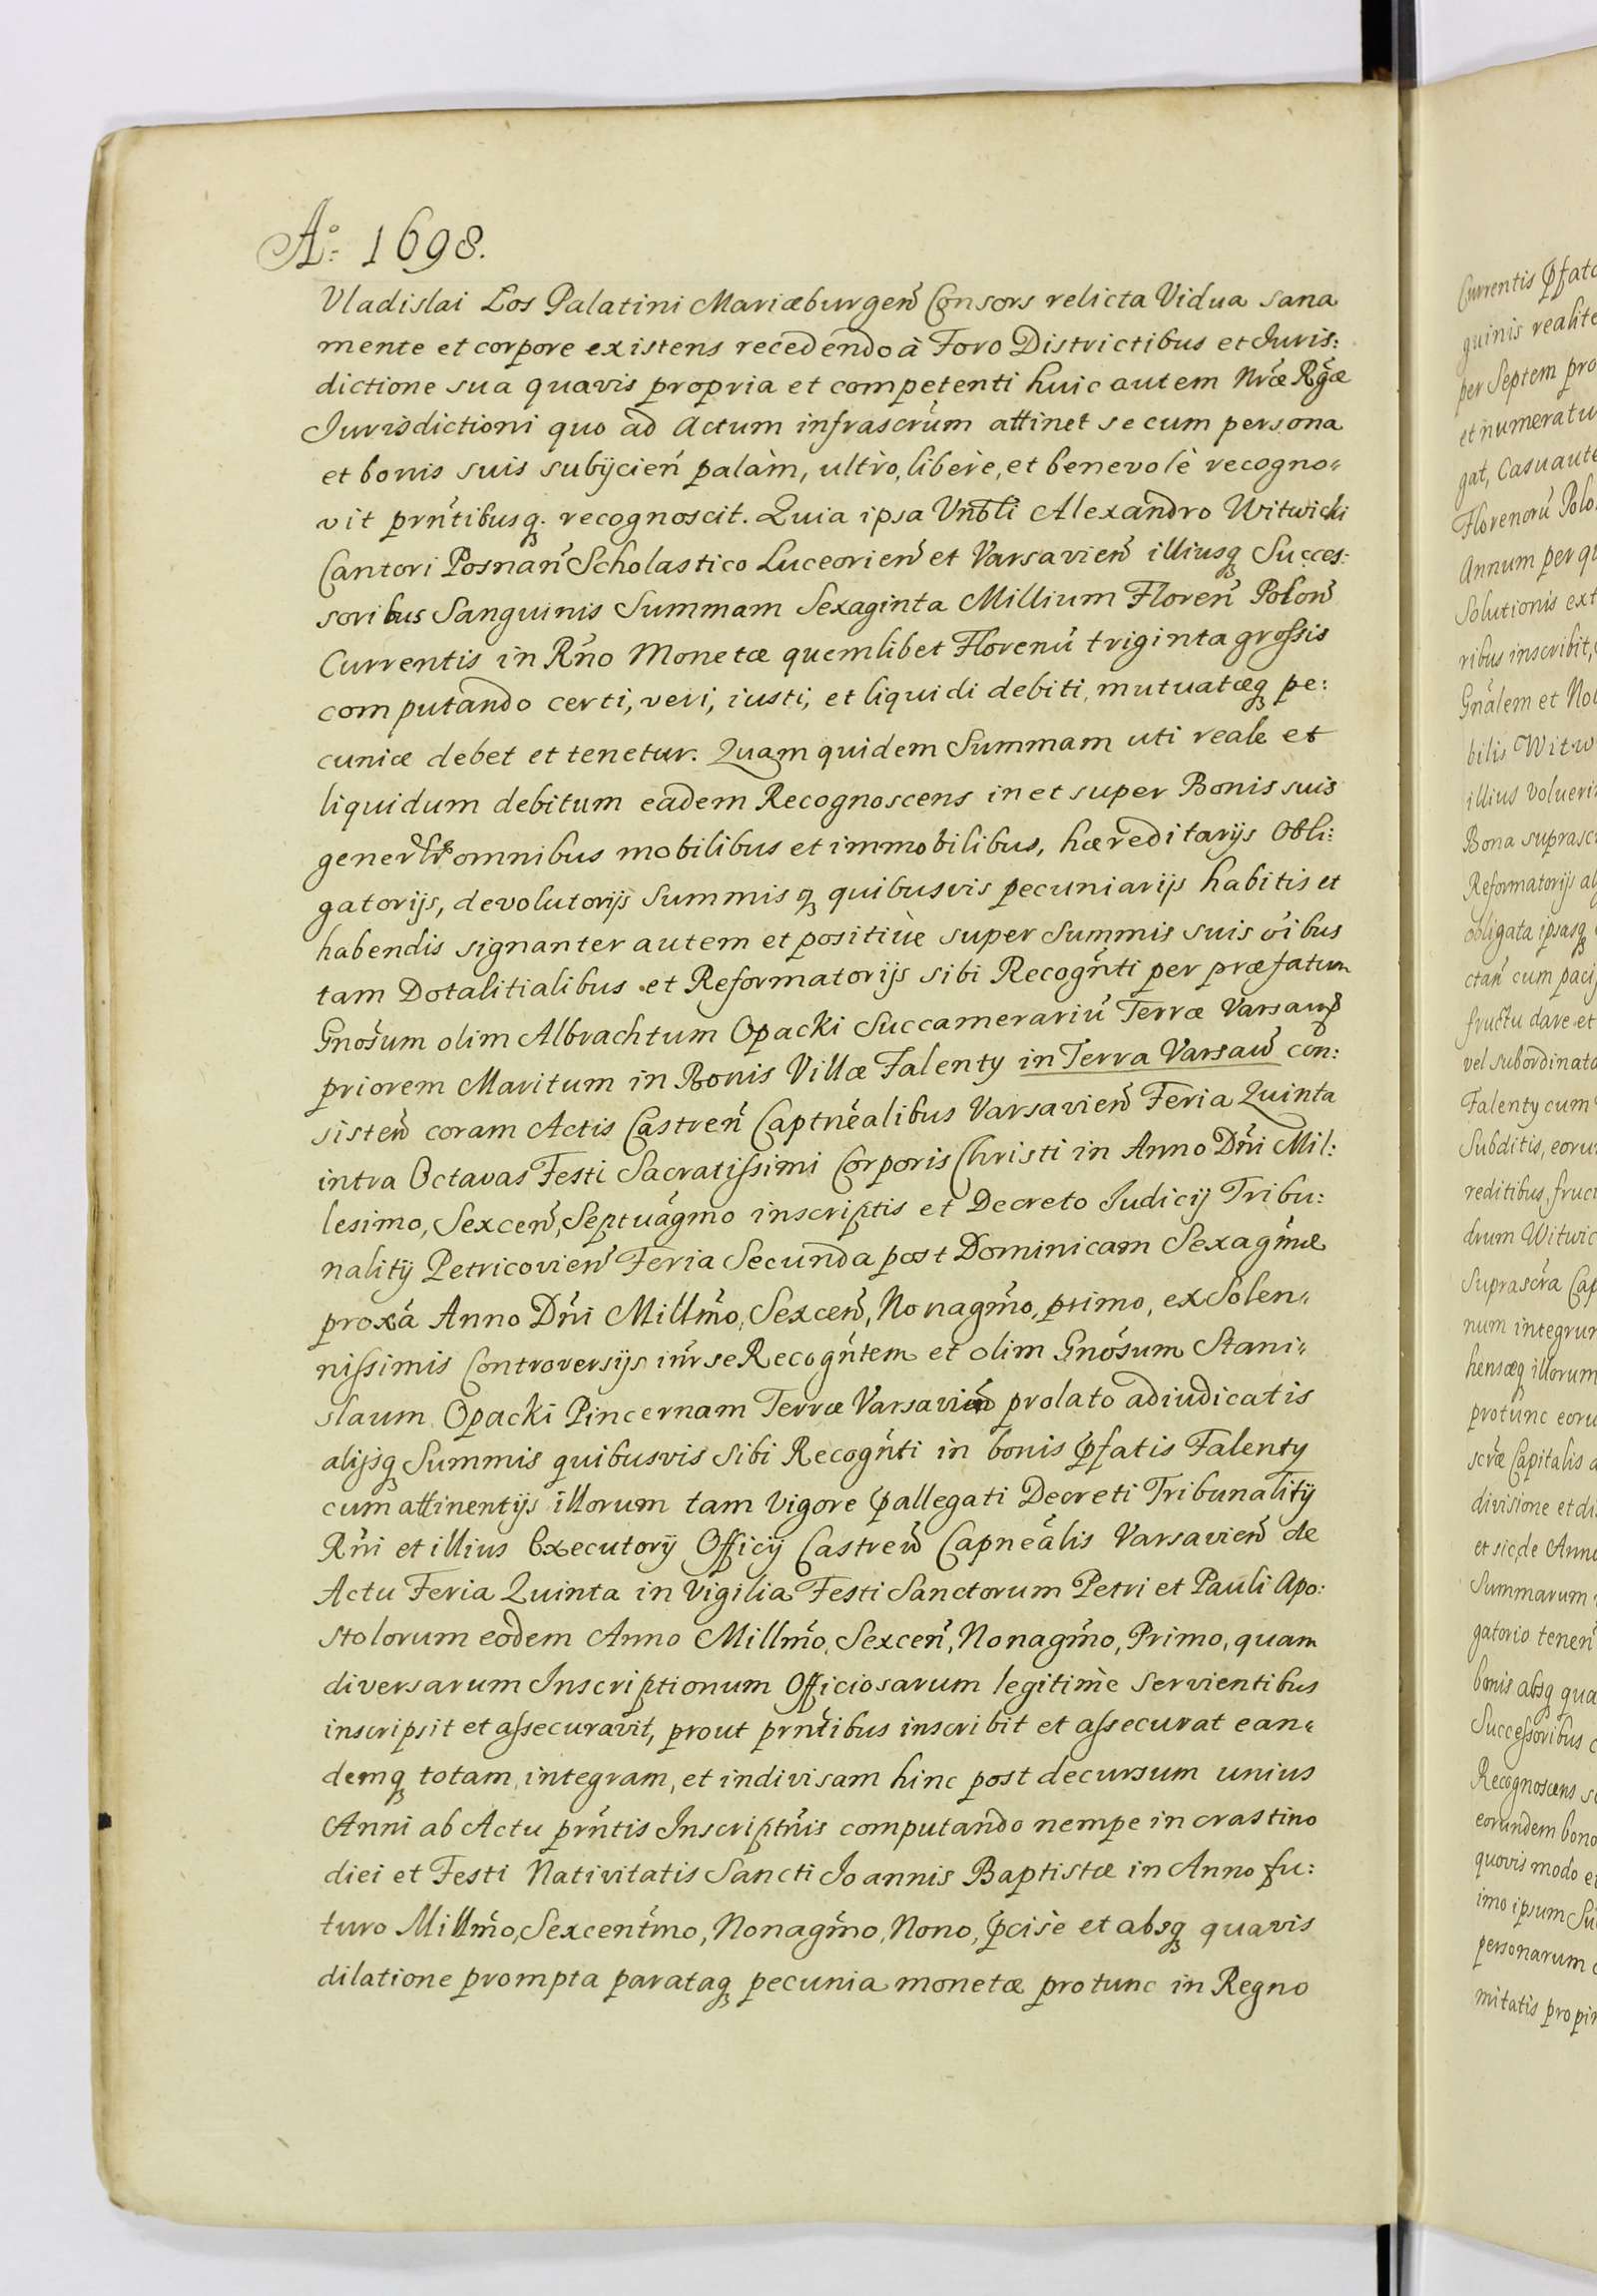 Aᵒ: 1698.
Vladislai Los Palatini Mariæburgen̄ Consors relicta Vidua sana
mente et corpore existens recedendo à Foro Districtibus et Juris:
dictione sua quavis propria et competenti huic autem Nr̄æ Rg̃æ
Jurisdictioni quo ad Actum infrascr̄um attinet se cum persona
et bonis suis subijcien̄ palàm, ultrò, liberè, et benevolè recogno„
vit prn̄tibusq. recognoscit. Quia ipsa Vnb̄li Alexandro Witwicki
Cantori Posnan̄ Scholastico Luceorien̄ et Varsavien̄ illiusq Succes:
soribus Sanguinis Summam Sexaginta Millium Floren̄ Polon̄
Currentis in Rn̄o Monetæ quemlibet Florenū triginta grossis
computando certi, veri, iusti, et liquidi debiti, mutuatæq pe:
cuniæ debet et tenetur. Quam quidem Summam uti reale et
liquidum debitum eadem Recognoscens in et super Bonis suis
omnibus mobilibus et immobilibus, hæreditarijs Obli:
gatorijs, devolutorijs Summisq quibusvis pecuniarijs habitis et
habendis signanter autem et positivè super Summis suis ōibus
tam Dotalitialibus et Reformatorijs sibi Recogn̄ti per præfatum
Gnōsum olim Albrachtum Opacki Succamerariū Terræ Varsav̄
priorem Maritum in Bonis Villæ Falenty in Terra Varsav̄ con:
sisten̄ coram Actis Castren̄ Captnēalibus Varsavien̄ Feria Quinta
intra Octavas Festi Sacratissimi Corporis Christi in Anno Dn̄i Mil:
lesimo, Sexcen̄, Septuāgmo inscriptis et Decreto Judicij Tribu:
nalitij Petricovien̄ Feria Secunda post Dominicam Sexagm̄æ
proxā Anno Dn̄i Millm̄o, Sexcen̄, Nonagm̄o, primo, ex Solen„
nissimis Controversijs in̄r se Recogn̄tem et olim Gnōsum Stani„
slaum Opacki Pincernam Terræ Varsavien̄ prolato adiudicatis
alijsq Summis quibusvis sibi Recogn̄ti in bonis p̄fatis Falenty
cum attinentijs illorum tam vigore p̄allegati Decreti Tribunalitij
Rn̄i et illius Executorij Officij Castren̄ Capneālis Varsavien̄ de
Actu Feria Quinta in Vigilia Festi Sanctorum Petri et Pauli Apo:
stolorum eodem Anno Millm̄o, Sexcen̄, Nonagm̄o, Primo, quam
diversarum Inscriptionum Officiosarum legitimè servientibus
inscripsit et assecuravit, prout prn̄tibus inscribit et assecurat ean„
demq totam, integram, et indivisam hinc post decursum unius
Anni ab Actu prn̄tis Inscriptn̄is computando nempe in crastino
diei et Festi Nativitatis Sancti Joannis Baptistæ in Anno fu:
turo Millm̄o, Sexcentm̄o, Nonagm̄o, Nono, p̄cisè et absq quavis
dilatione prompta parataq pecunia monetæ protunc in Regno
Currentis p̄fato
guinis realite
per Septem pro
et numeratu
gat, Casu aute
Florenorū Polo
Annum per qu
Solutionis ext
ribus inscribit,
Gnālem et No
bilis Witw
illius volueri
Bona suprascr
Reformatorijs al
obligata ipsasq
ctan̄ cum paci
fructu dare et
vel subordinata
Falenty cum
Subditis, eoru
reditibus, fruc
drum Witwic
Suprascr̄a Cap
num integrum
hensæq illorum
protunc eoru
scr̄æ Capitalis a
divisione et di
et sic de Anno
Summarum
gatorio tenen̄
bonis absq qua
Successoribus
Recognoscens s
eorundem bono
quovis modo et
imo ipsum Su
personarum
mitatis propin